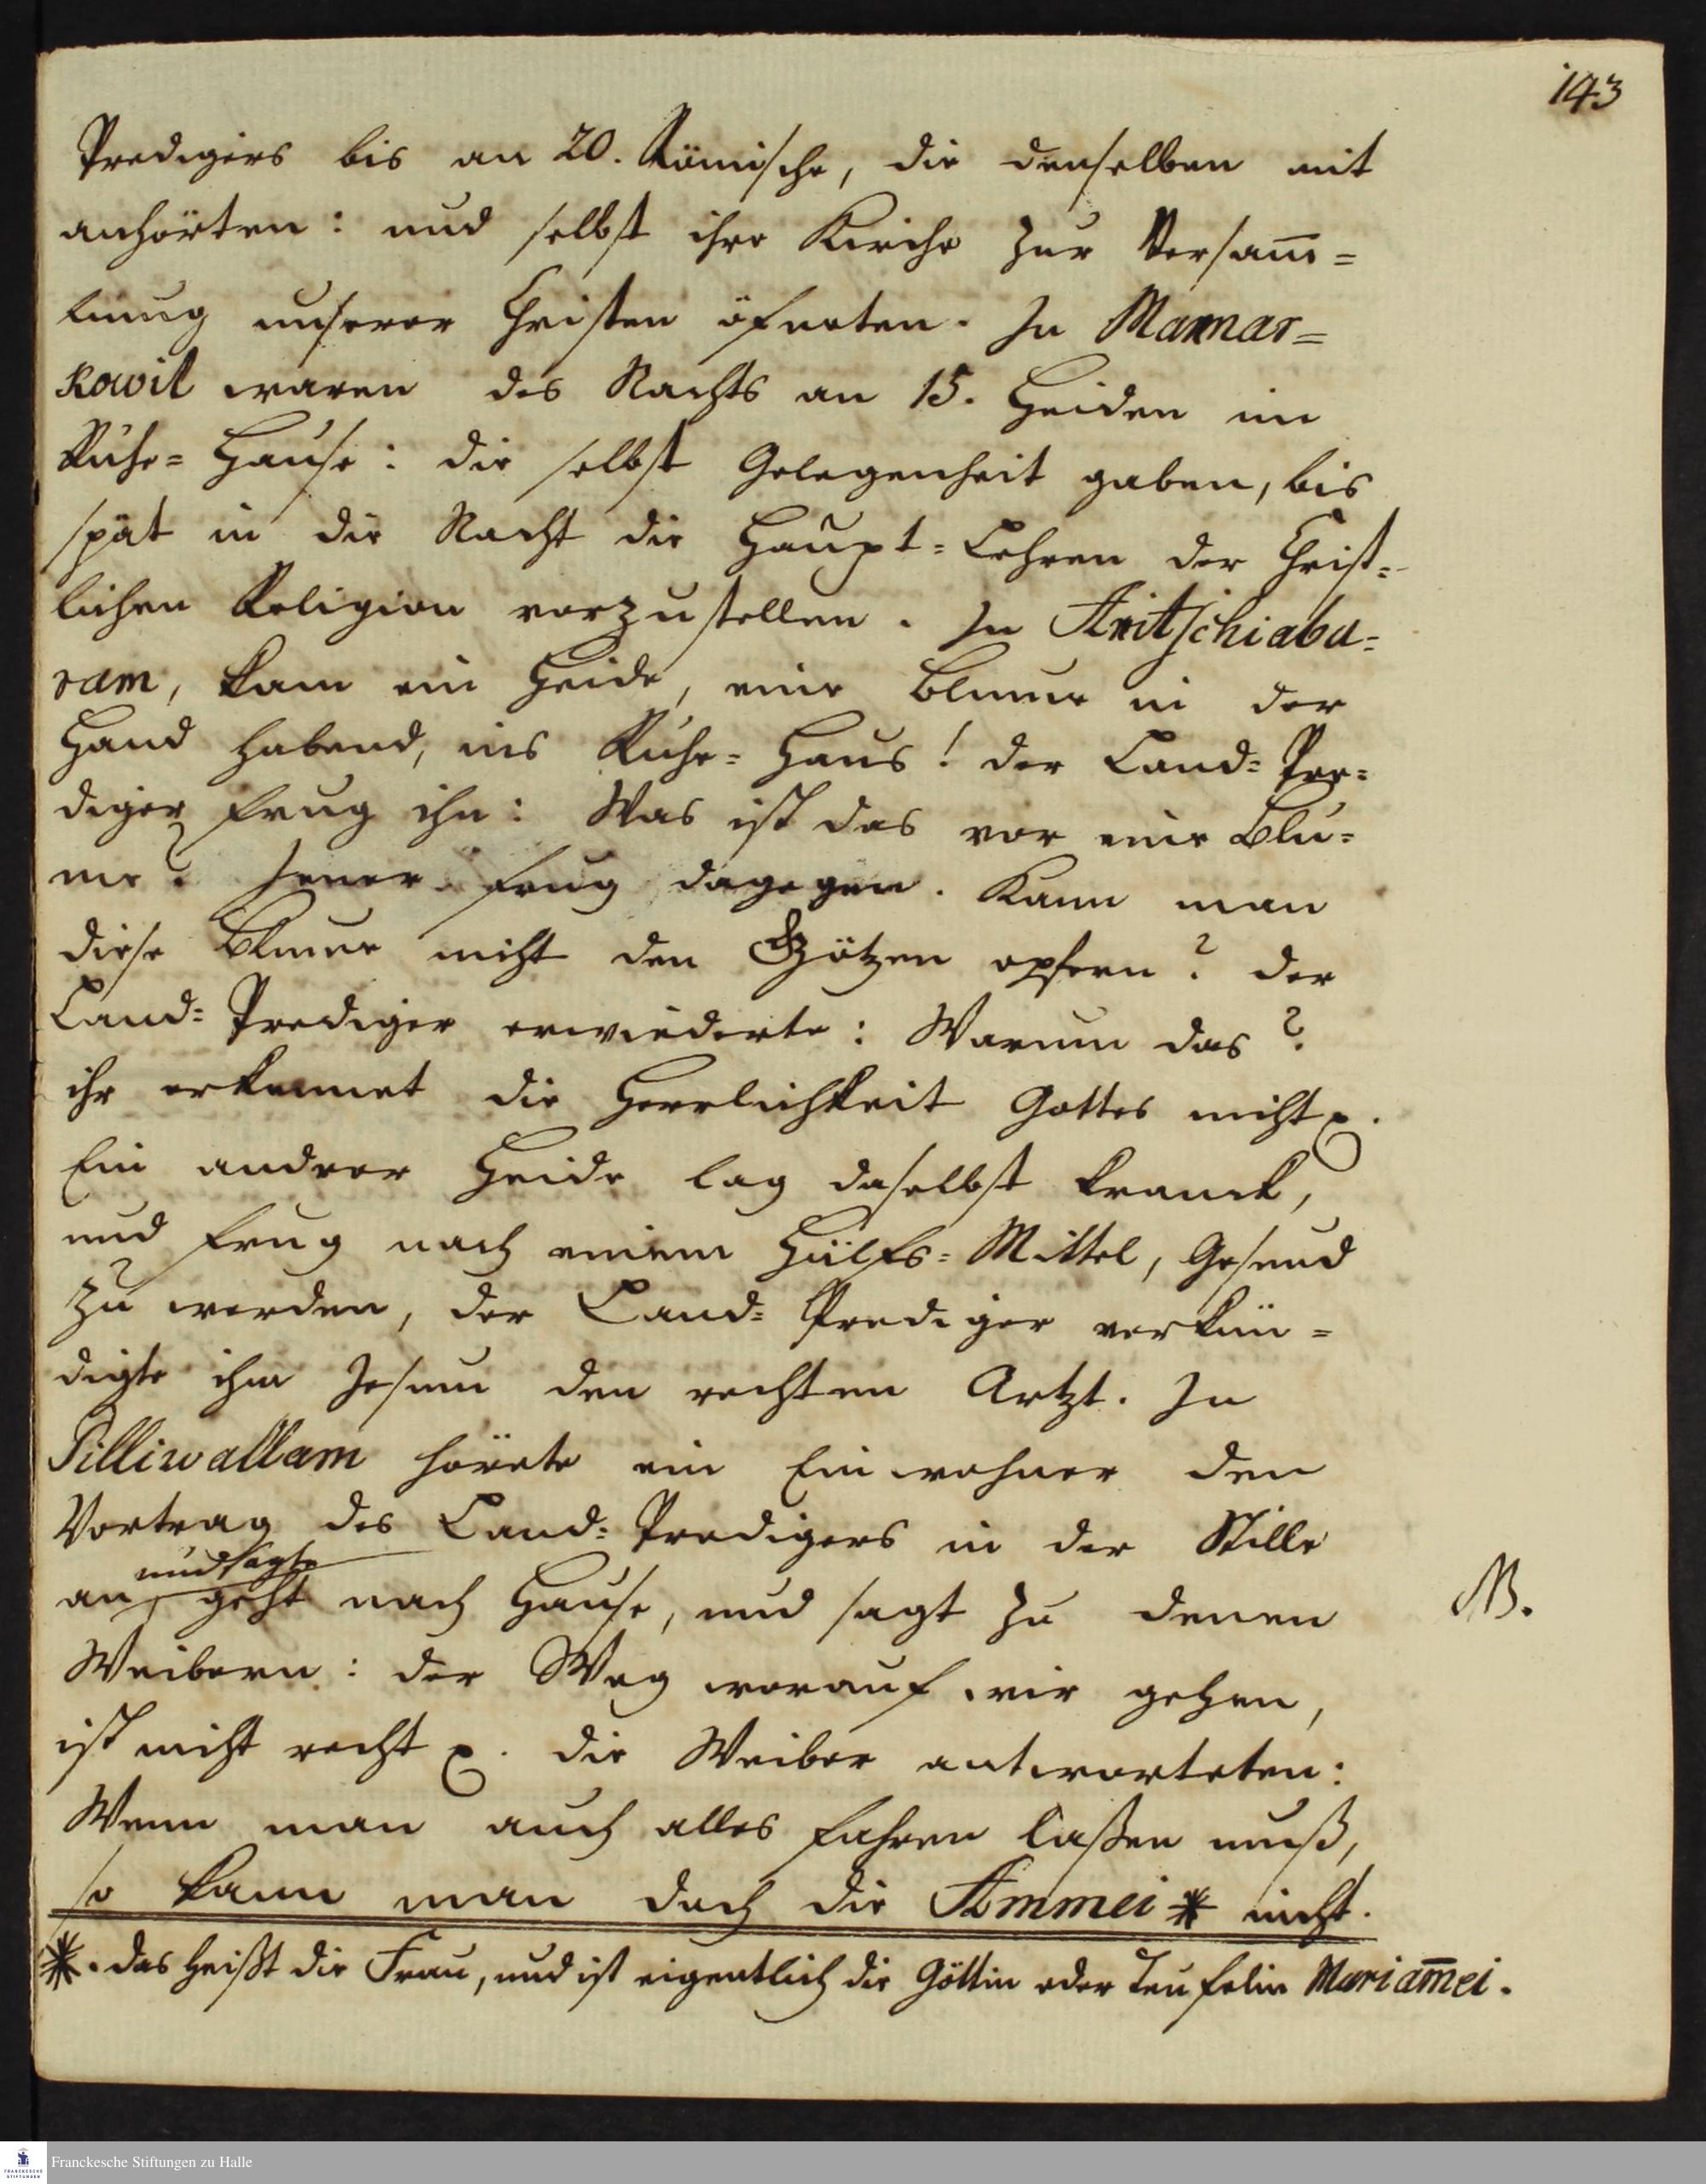 143
Predigers bis an 20. Römische, die denselben mit
anhörten: und selbst ihre Kirche zur Versam̅=
lung unserer Christen öfneten. In Mannar=
kowil waren des Nachts an 15. Heiden im
Ruhe=Hause: die selbst Gelegenheit gaben, bis
spät in die Nacht die Haupt=Lehren der Christ=
lichen Religion vorzustellen. In Anitschiabu=
ram, kam ein Heide, eine Blume in der
Hand habend, ins Ruhe=Haus! der Land=Pre=
diger frug ihn: Was ist das vor eine Blu=
me? Jener frug dagegen. Kann man
diese Blume nicht den Götzen opfern? der
Land=Prediger erwiederte: Warum das?
ihr erkennet die Herrlichkeit Gottes nicht p.
Ein andrer Heide lag daselbst kranck,
und frug nach einem Hülfs=Mittel, Gesund
zu werden, der Land=Prediger verkün=
digte ihm Jesum den rechten Artzt. In
Pilliwallam hörete ein Einwohner den
Vortrag des Land=Predigers in der Stille
und sagte
an, geht nach Hause, und sagt zu denen
NB.
Weibern: der Weg worauf wir gehen,
ist nicht recht p. die Weiber antworteten:
Wenn man auch alles fahren laßen muß,
so kann man doch die Ammei * nicht.
*. das heißt die Frau, und ist eigentlich die Göttin oder Teufelin Mariam̅ei.
Franckesche Stiftungen zu Halle